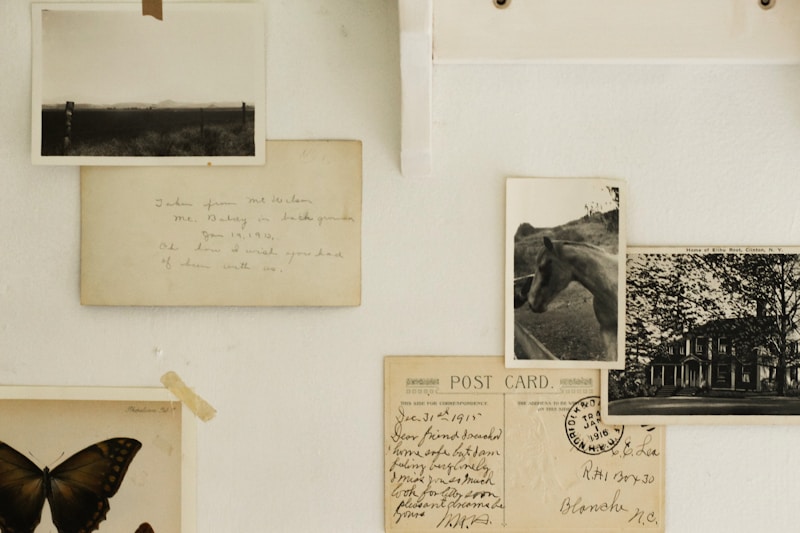 Taken from Mt. Wilson
Mt. Baldy in background
Jan 19, 1913.
Oh how I wish you had
of been with us.
Home of Elihu Root, Clinton, N. Y.
POST CARD.
THIS SIDE FOR CORRESPONDENCE.
THE ADDRESS TO BE
ON THIS
Dec 31st 1915
Dear friend I reached
home safe but I am
feeling very lonely
I miss you so much
look for soon
pleasant dreams
yours
NORFOLK
JAN
1
1916
Lea
R#1 Box 30
Blanche
N.C.